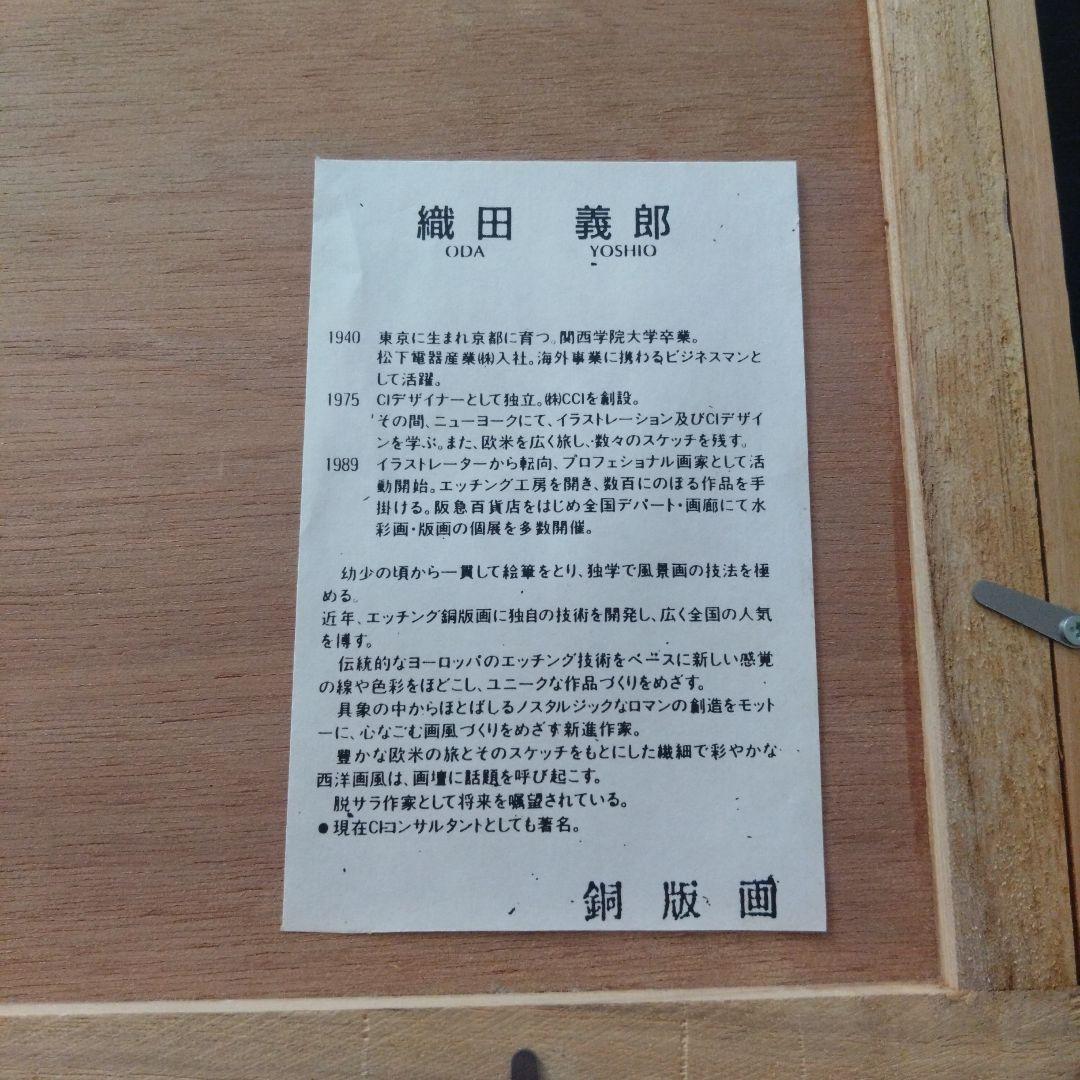 織田 義郎
ODA YOSHIO
1940 東京に生まれ京都に育つ。関西学院大学卒業。
松下電器産業㈱入社。海外事業に携わるビジネスマンと
して活躍。
1975 CIデザイナーとして独立。㈱CCIを創設。
その間、ニューヨークにて、イラストレーション及びCIデザイ
ンを学ぶ。また、欧米を広く旅し、数々のスケッチを残す。
1989 イラストレーターから転向、プロフェショナル画家として活
動開始。エッチング工房を開き、数百にのぼる作品を手
掛ける。阪急百貨店をはじめ全国デパート・画廊にて水
彩画・版画の個展を多数開催。
幼少の頃から一貫して絵筆をとり、独学で風景画の技法を極
める。
近年、エッチング銅版画に独自の技術を開発し、広く全国の人気
を博す。
伝統的なヨーロッパのエッチング技術をベースに新しい感覚
の線や色彩をほどこし、ユニークな作品づくりをめざす。
具象の中からほとばしるノスタルジックなロマンの創造をモット
ーに、心なごむ画風づくりをめざす新進作家。
豊かな欧米の旅とそのスケッチをもとにした繊細で彩やかな
西洋画風は、画壇に話題を呼び起こす。
脱サラ作家として将来を嘱望されている。
●現在CIコンサルタントとしても著名。
銅版画